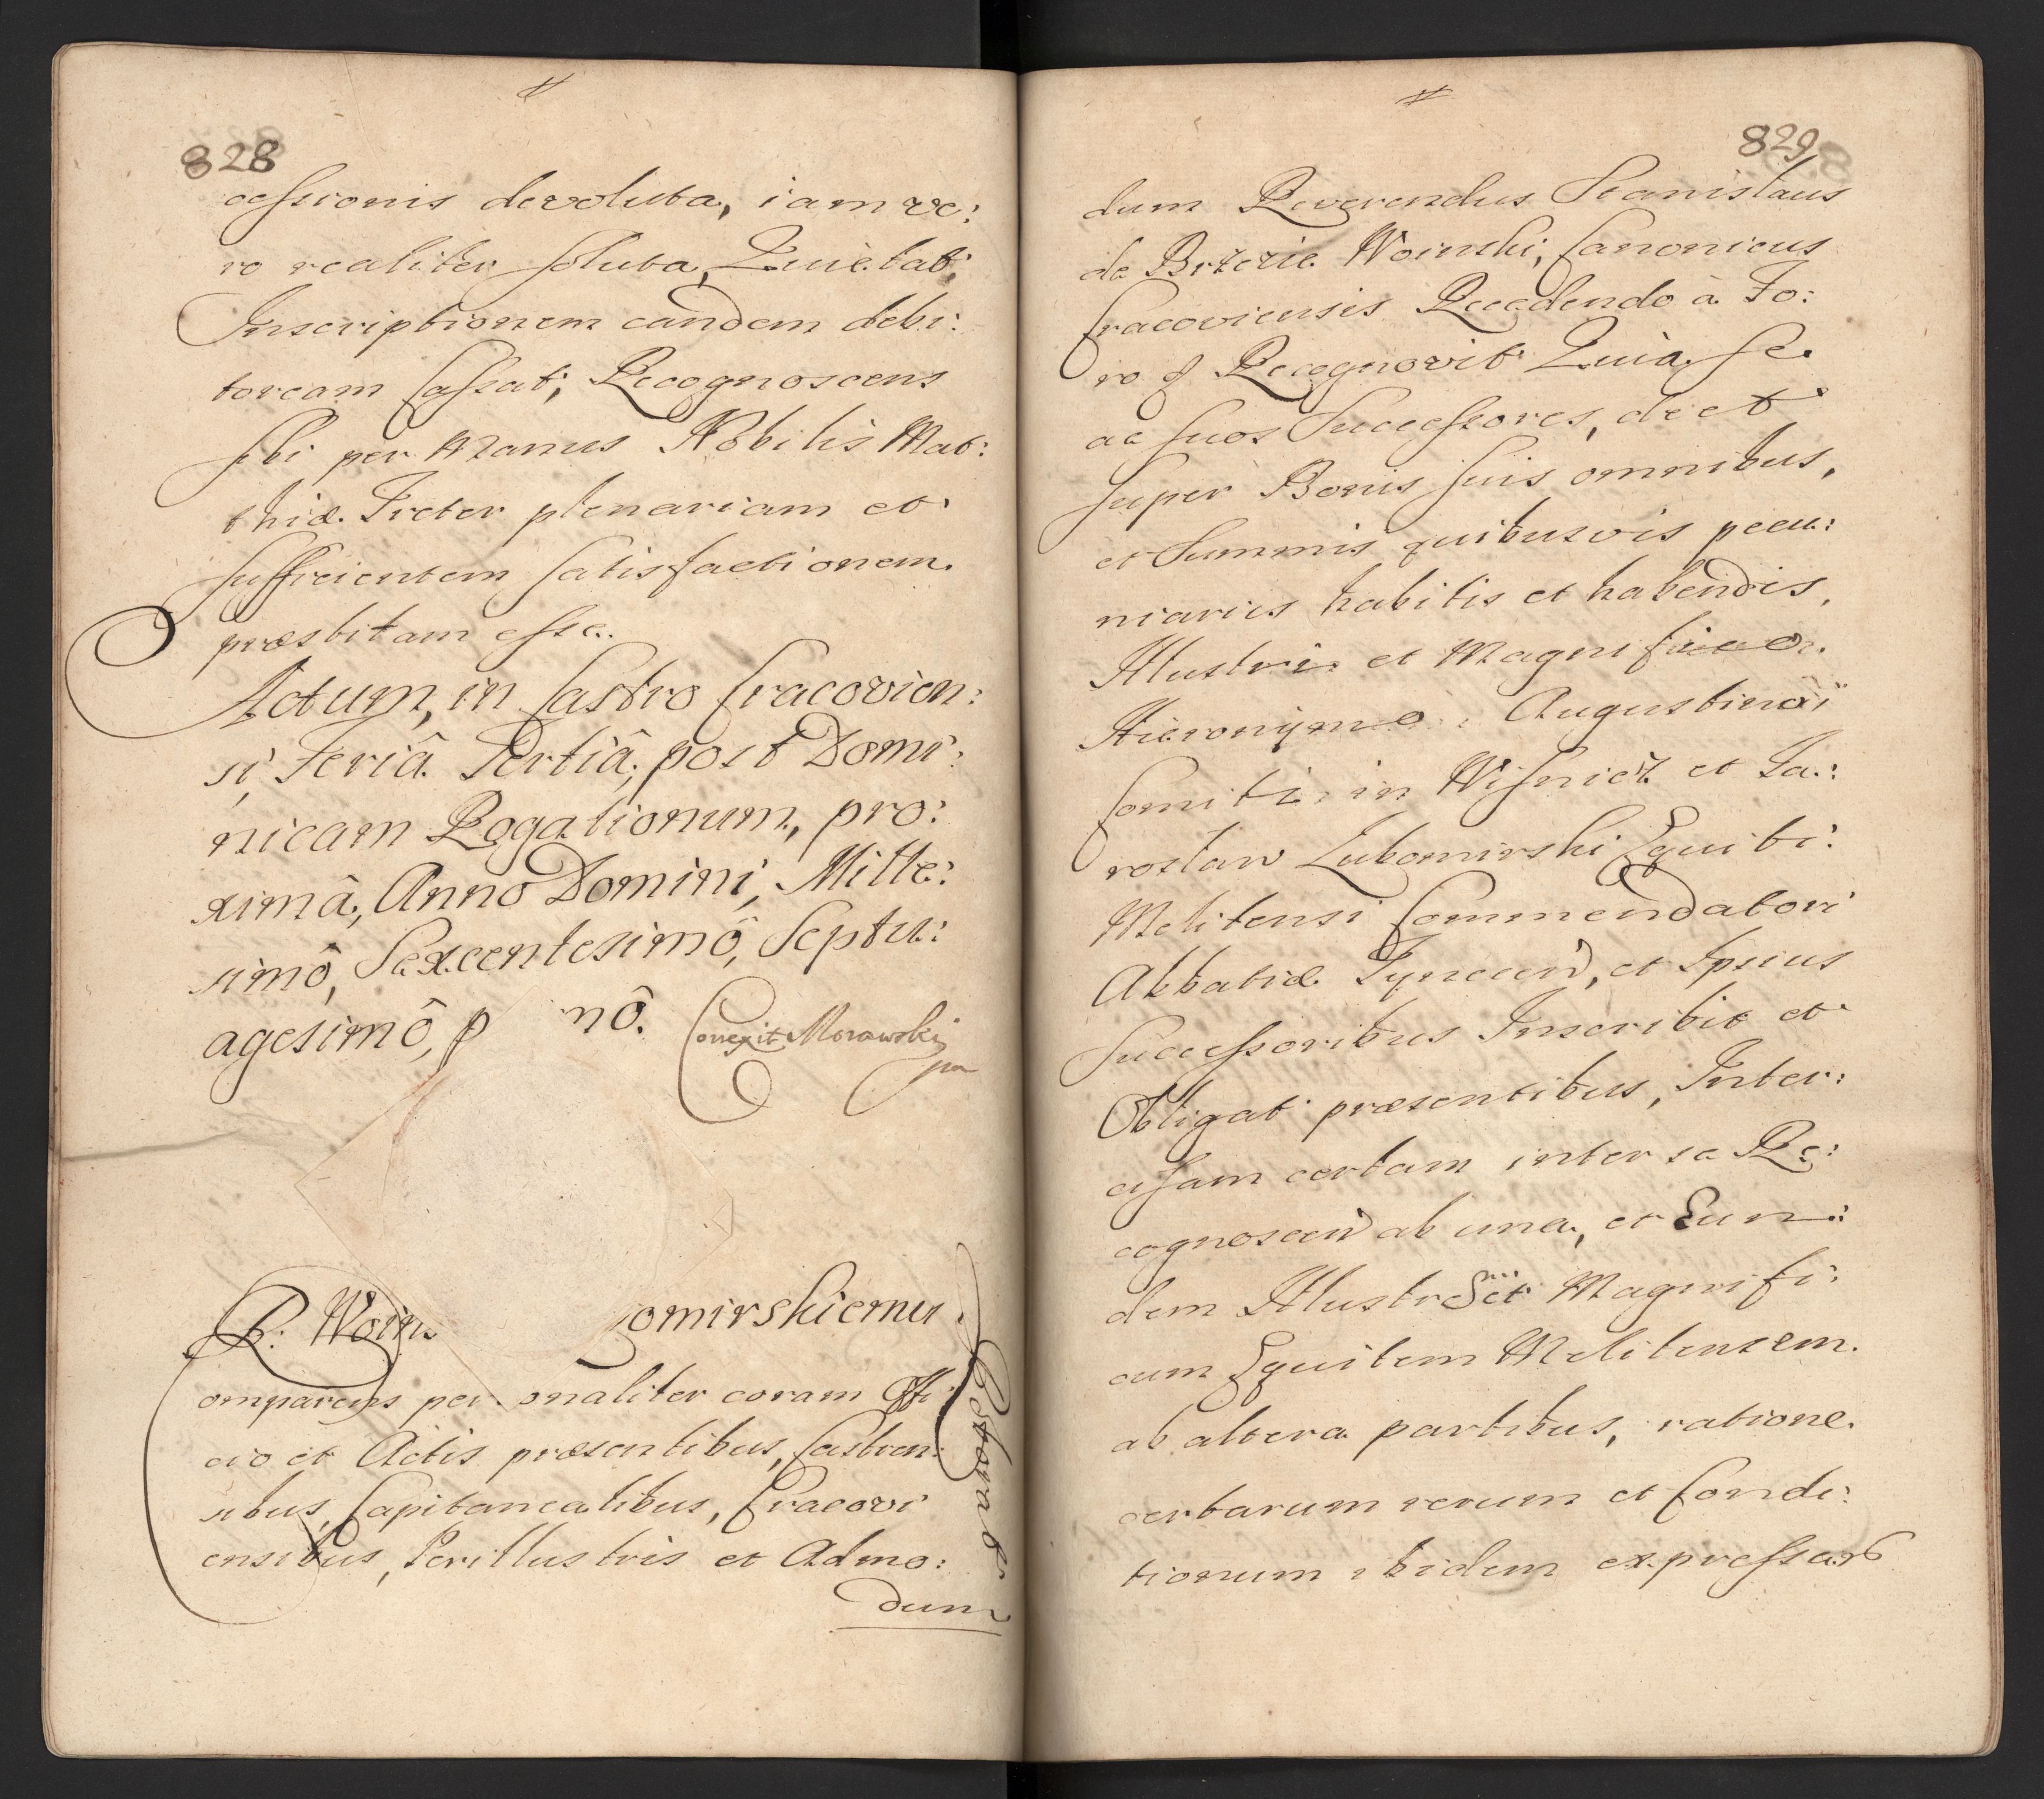 828
cessionis devoluta, iam ve:
ro realiter soluta, Quietat,
Inscriptionem eandem debi:
toream Cassat, Recognoscens
sibi per Manus Nobilis Mat:
thiæ Treter plenariam et
sufficientem satisfactionem
præstitam esse.
Actum, in Castro Cracovien:
si, Feriâ Tertiâ, post Domi:
nicam Rogationum, pro:
ximâ, Anno Domini, Mille:
simô, Sexcentesimô, Septu:
agesimô, p nô.
Correxit Morawski
R. Woin omirskiemu
omparens personaliter coram Offi:
cio et Actis præsentibus, Castren:
sibus, Capitanealibus, Cracovi
ensibus, Perillustris et Admo:
dum
829
dum Reverendus Stanislaus
de Brzezie Woinski, Canonicus
Cracoviensis Recedendo à Fo:
ro & Recognovit Quia se
ac suos Successores, de et
super Bonis suis omnibus,
et Summis quibusvis pecu:
niariis habitis et habendis,
Illustri et Magnifico
Hieronymo Augustino
Comiti in Wisnicz et Ja:
roslaw Lubomirski Equiti
Melitensi Commendatori
Abbatiæ Tynecen, et Ipsius
Successoribus Inscribit et
Obligat præsentibus, Inter:
cisam certam inter se Re:
cognoscen ab una, et Eun:
dem Illustrem et Magnifi:
cum Equitem Melitensem
ab altera partibus, ratione
certarum rerum et Condi:
tionum ibidem expressar